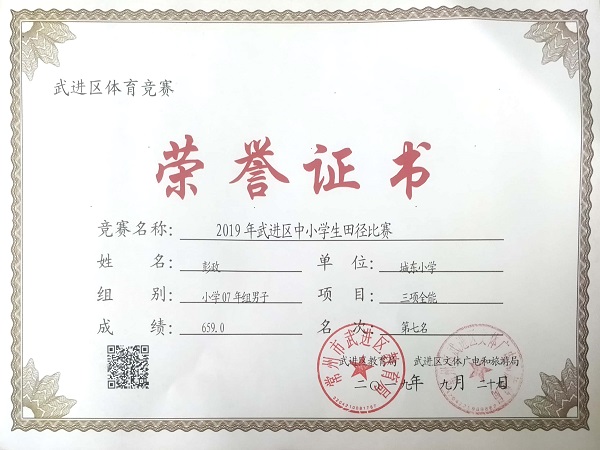 武进区体育竞赛
荣誉证书
竞赛名称: 2019年武进区中小学生田径比赛
姓 名: 彭政 单 位: 城东小学
组 别: 小学07年组男子 项 目: 三项全能
成 绩: 659.0 名 次: 第七名
武进区教育局 武进区文体广电和旅游局
二〇一九年 九月 二十日
常州市武进区教育局